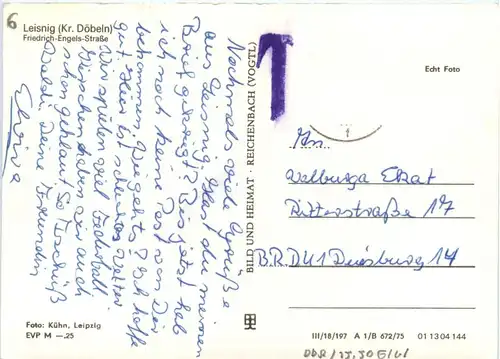 6
Leisnig (Kr. Döbeln)
Friedrich-Engels-Straße
Nochmals viele Grüße
aus Leisnig. Hast du meinen
Brief gekriegt? Bis jetzt hab
ich noch keine Post von Dir
bekommen. Wie gehts? Ich hoffe
gut. Hier ist schlechtes Wetter
Wir spielen viel Federball.
Kirschen haben wir auch
schon geklaut. So Tschüß
Waldi, Deine Freundin
Elvira
BILD UND HEIMAT · REICHENBACH (VOGTL)
Echt Foto
An
Walburga
Ritterstraße 17
B.R.D. 41 Duisburg 14
Foto: Kühn, Leipzig
EVP M —.25
III/18/197 A 1/B 672/75 01 13 04 144